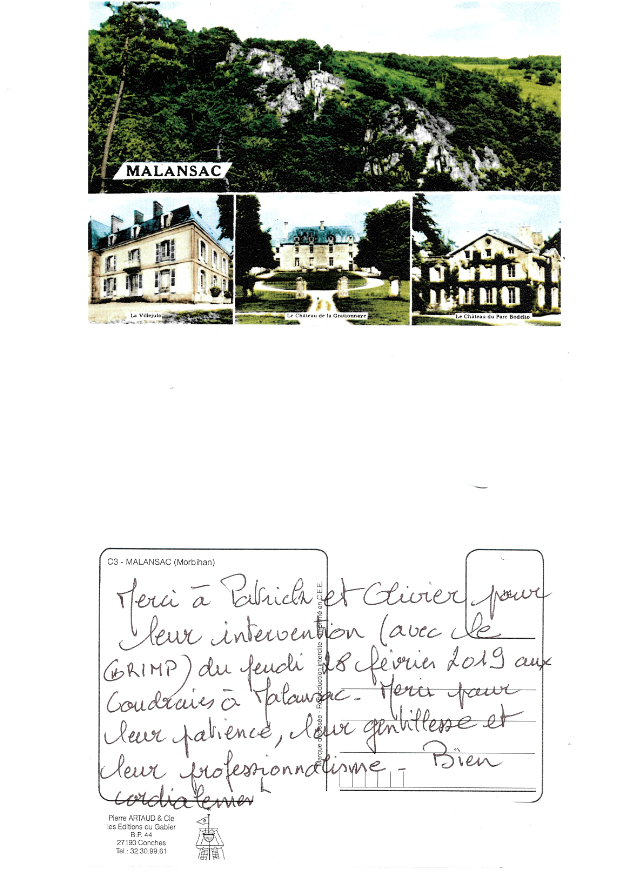 MALANSAC
La Villejuin
Le Château de la Grationnaye
Le Château du Parc Bodélio
C3 - MALANSAC (Morbihan)
Merci à Patrick et Olivier pour
leur intervention (avec le
GRIMP) du jeudi 28 février 2019 aux
Coudraies à Malansac - Merci pour
leur patience, leur gentillesse et
leur professionnalisme - Bien
cordialement
Reproduction interdite
Pierre ARTAUD & Cie
les Editions du Gabier
B.P. 44
27190 Conches
Tel : 32.30.99.61